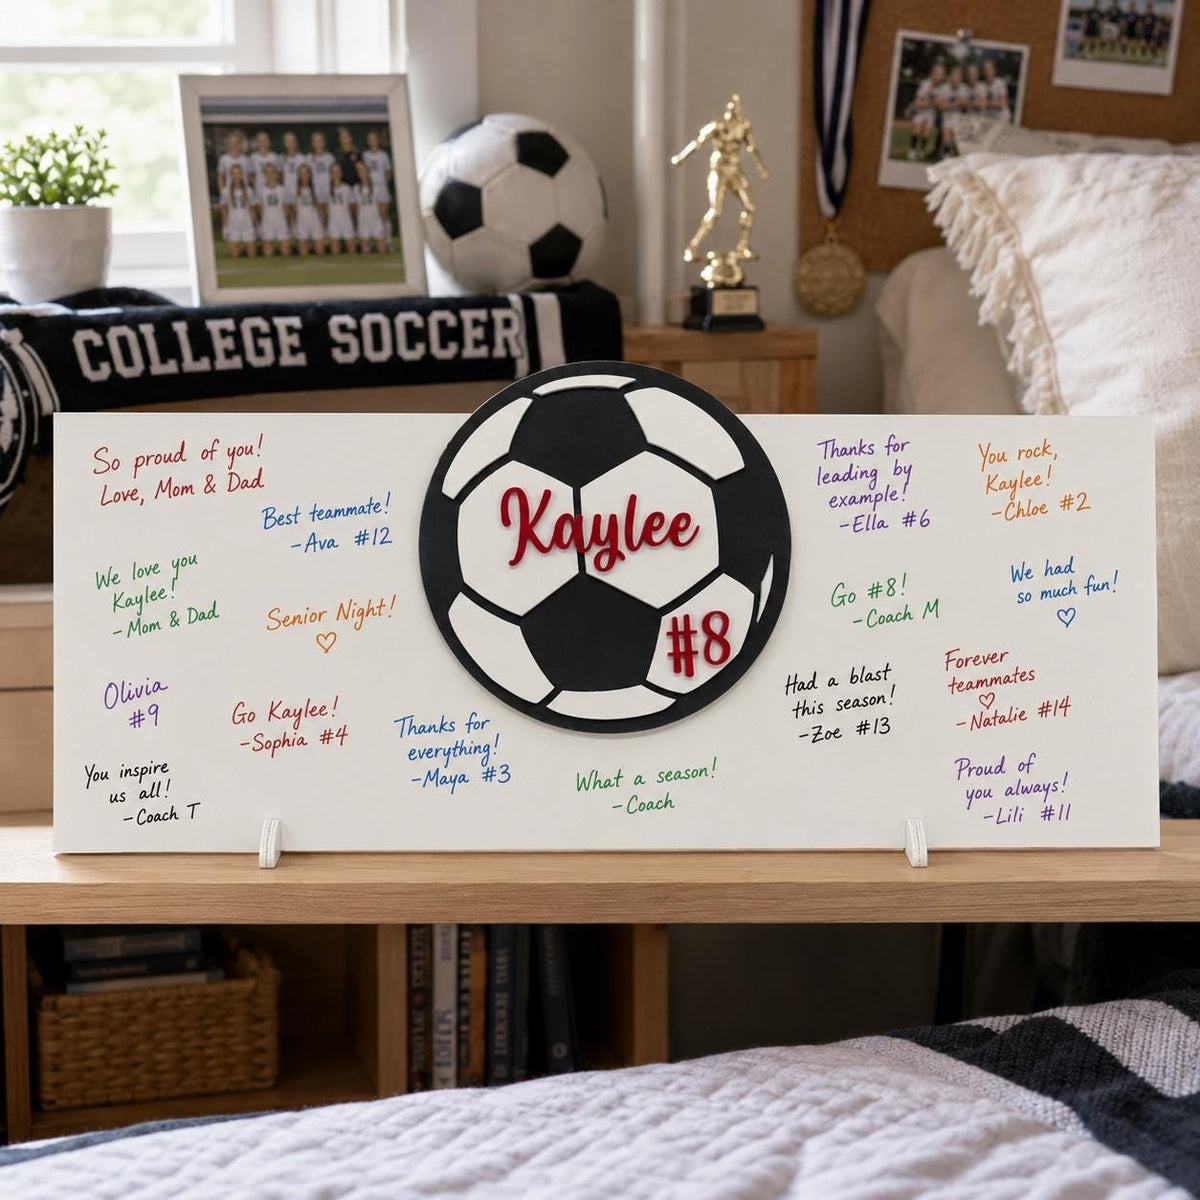 COLLEGE SOCCER
So proud of you!
Love, Mom & Dad
Best teammate!
-Ava #12
We love you
Kaylee!
-Mom & Dad
Senior Night!
Olivia
#9
Go Kaylee!
-Sophia #4
You inspire
us all!
-Coach T
Thanks for
everything!
-Maya #3
Kaylee
#8
What a season!
-Coach
Thanks for
leading by
example!
-Ella #6
You rock,
Kaylee!
-Chloe #2
Go #8!
-Coach M
We had
so much fun!
Had a blast
this season!
-Zoe #13
Forever
teammates
-Natalie #14
Proud of
you always!
-Lili #11